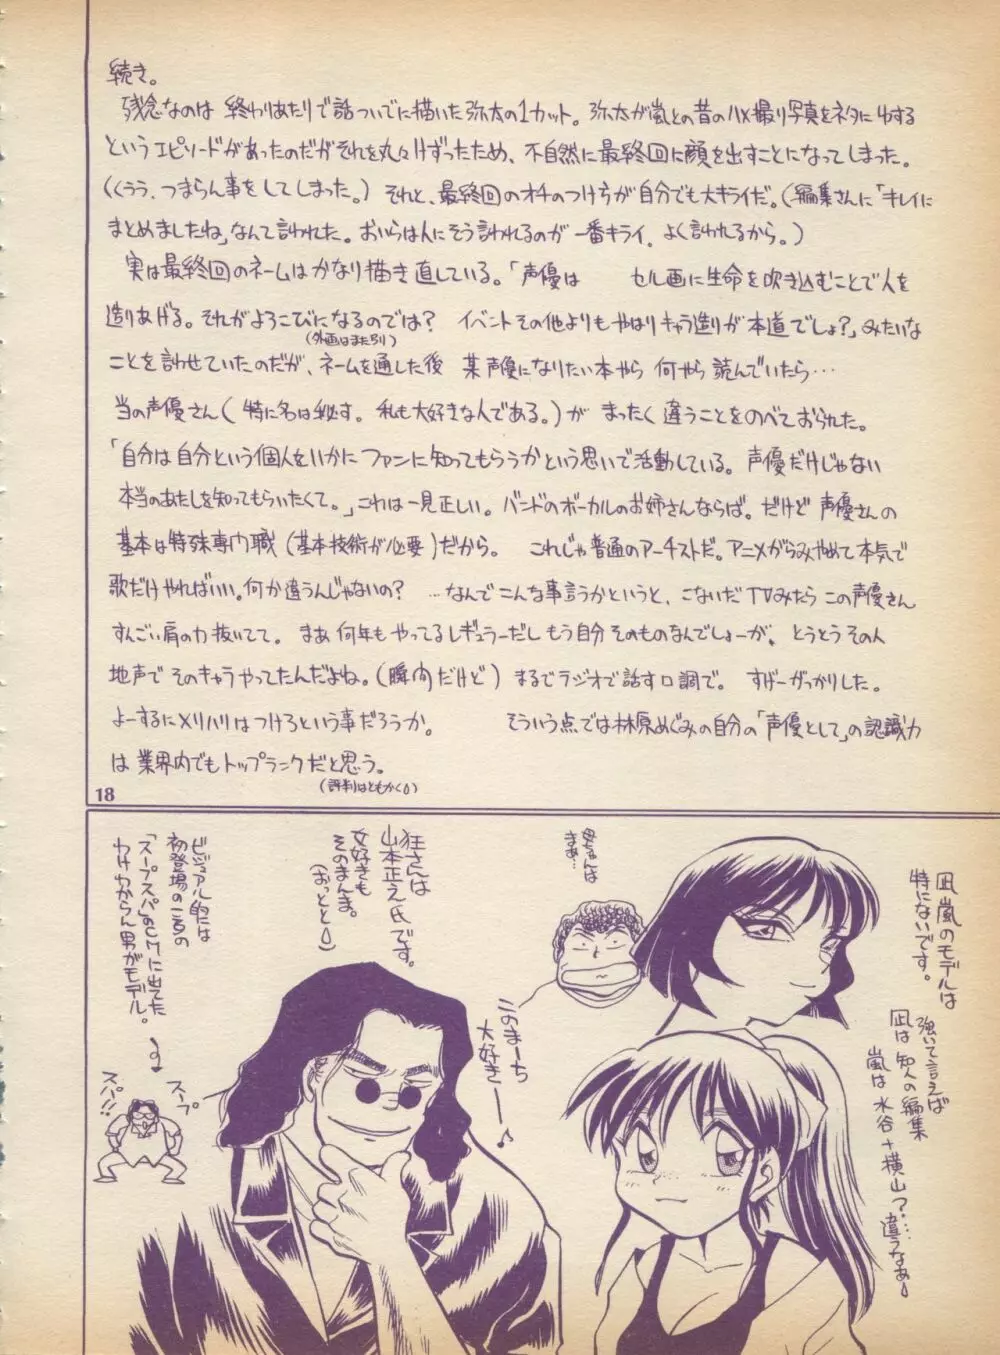 続き。
残念なのは 終わりあたりで話ついでに描いた弥太の1カット。弥太が嵐との昔のハメ撮り写真をネタにゆする
というエピソードがあったのだがそれを丸々けずったため、不自然に最終回に顔を出すことになってしまった。
(くうう、つまらん事をしてしまった。) それと、最終回のオチのつけ方が自分でも大キライだ。(編集さんに「キレイに
まとめましたね」なんて言われた。おいらは人にそう言われるのが一番キライ。よく言われるから。)
実は最終回のネームはかなり描き直している。「声優は セル画に生命を吹き込むことで人を
造りあげる。それがよろこびになるのでは? イベントその他よりもやはりキャラ造りが本道でしょ?」みたいな
(外画はまた別り)
ことを言わせていたのだが、ネームを通した後 某声優になりたい本やら何やら読んでいたら…
当の声優さん(特に名は秘す。私も大好きな人である。)が まったく違うことをのべておられた。
「自分は自分という個人をいかにファンに知ってもらうかという思いで活動している。声優だけじゃない
本当のあたしを知ってもらいたくて。」これは一見正しい。バンドのボーカルのお姉さんならば。だけど 声優さんの
基本は特殊専門職(基本技術が必要)だから。 これじゃ普通のアーチストだ。アニメがらみやめて本気で
歌だけやればいい。何か違うんじゃないの? …なんでこんな事言うかというと、こないだTVみたらこの声優さん
すんごい肩の力抜いてて。まあ何年もやってるレギュラーだしもう自分そのものなんでしょーが、とうとうその人
地声でそのキャラやってたんだよね。(瞬間だけど) まるでラジオで話す口調で。 すげーがっかりした。
よーするにメリハリはつけろという事だろうか。 そういう点では林原めぐみの自分の「声優として」の認識力
は業界内でもトップランクだと思う。
(評判はともかく)
18
凪嵐のモデルは
特にないです。
強いて言えば
凪は知人の編集
嵐は水谷+横山?…
違うなぁ
母さんは
まあ…
このまーち
大好きーー♪
狂さんは
山本正之氏です。
女好きも
そのまんま。
(おっとと)
ビジュアル的には
初登場の一言の
「スープスパ」のCMに出てた
わけわからん男がモデル。
スープ
スパ!!